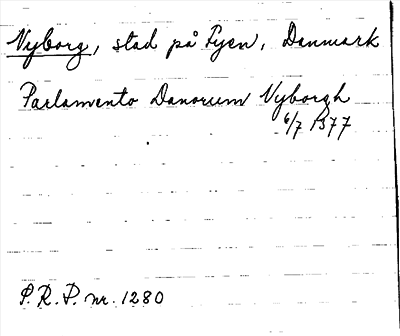 Nyborg, stad på Fyen, Danmark
Parlamento Danorum Nyborgh
6/7 1377
S.R.P. nr. 1280